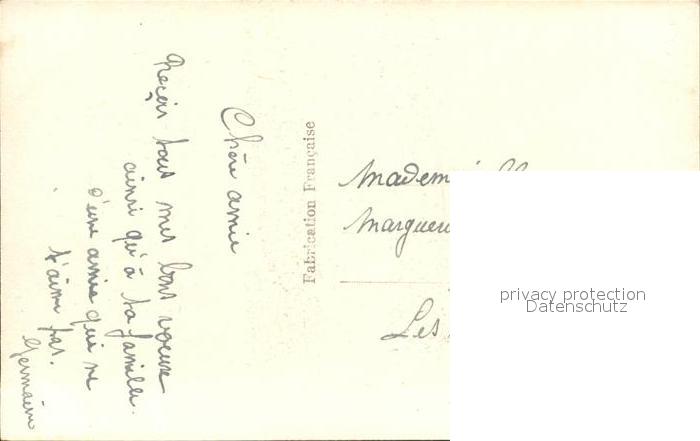 Chère amie
Reçois tous mes bons voeux
ainsi qu'à ta famille.
d'une amie qui ne
t'aime pas.
Germaine
Fabrication Française
Mademoi
Marguer
Les
privacy protection
Datenschutz